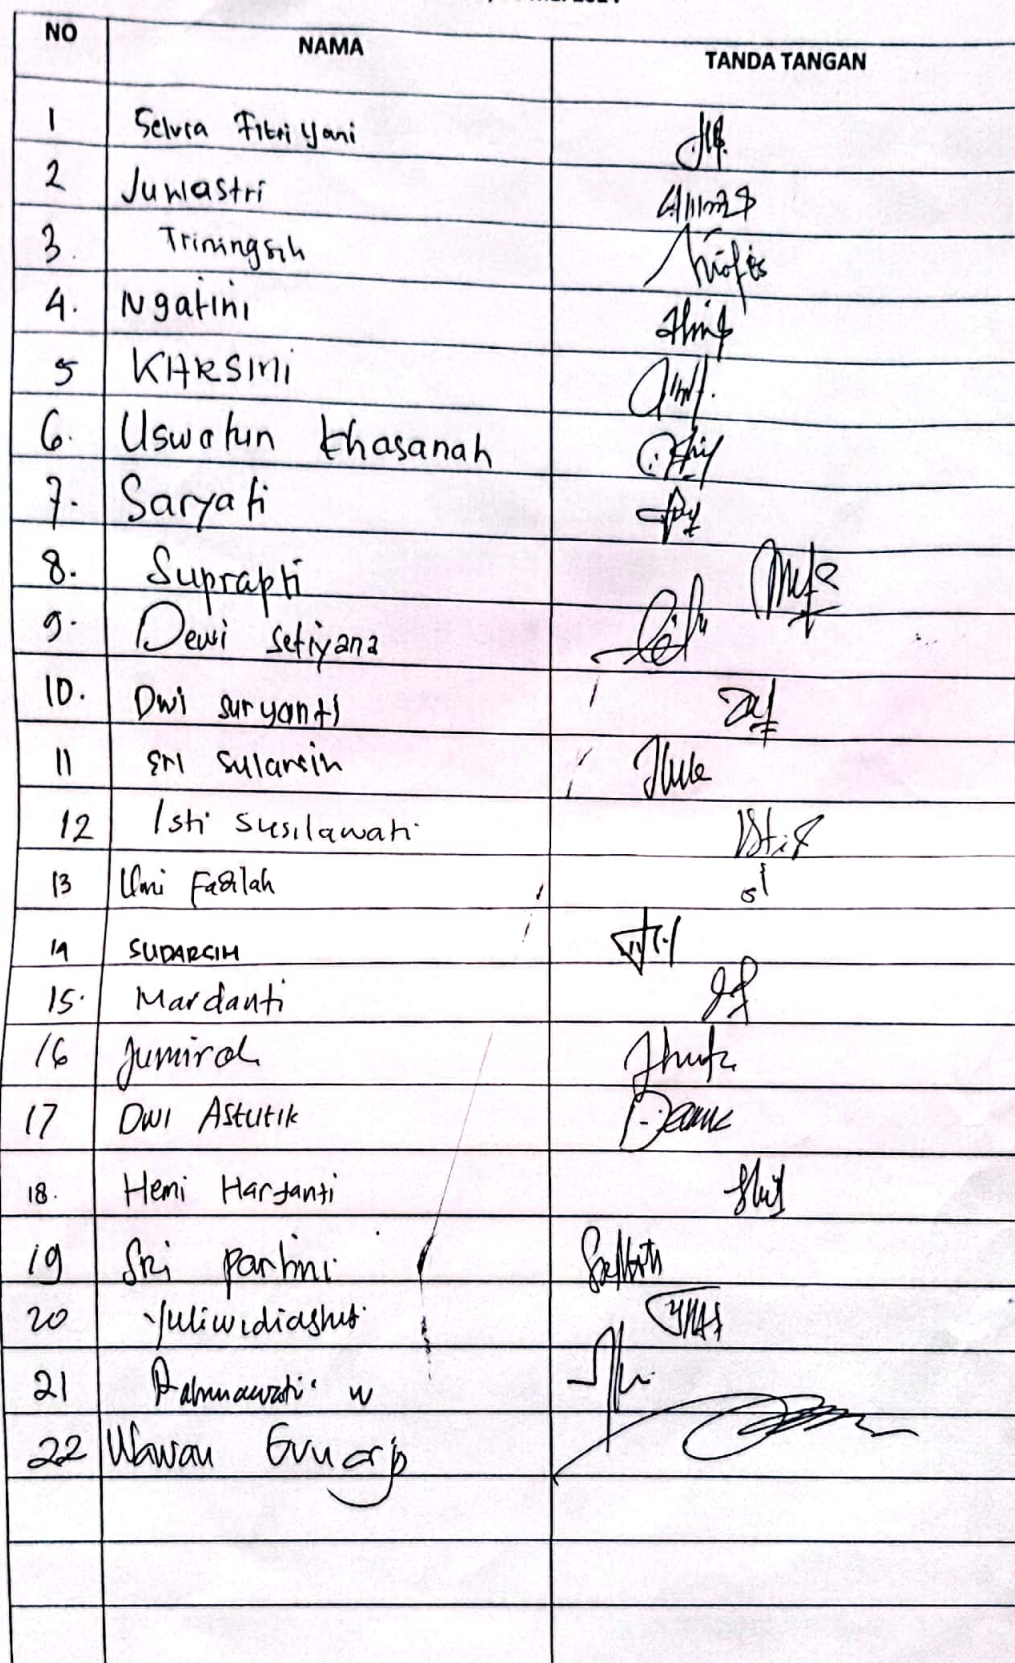 NO NAMA TANDA TANGAN
1 Selvia Fitriyani
2 Juwastri
3. Triningsih
4. Ngatini
5 KARSINI
6. Uswatun Khasanah
7. Saryati
8. Suprapti
9. Dewi Setiyana
10. Dwi Suryanti
11 Sri Sularsih
12 Isti Susilawati
13 Umi Fadilah
14 SUDARSIH
15. Mardanti
16 Jumirah
17 DWI ASTUTIK
18. Heni Hartanti
19 Sri Partini
20 Yuliwidiastuti
21 Rahmawati W
22 Wawan